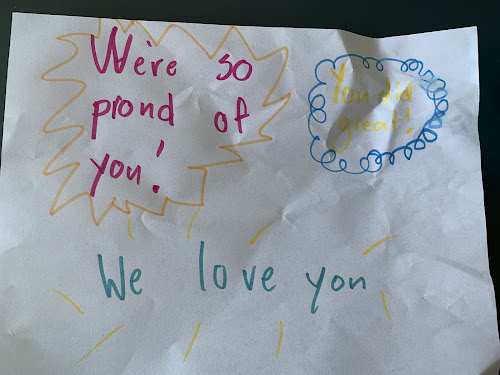 We're so
proud of
you!
You did
great!
We love you